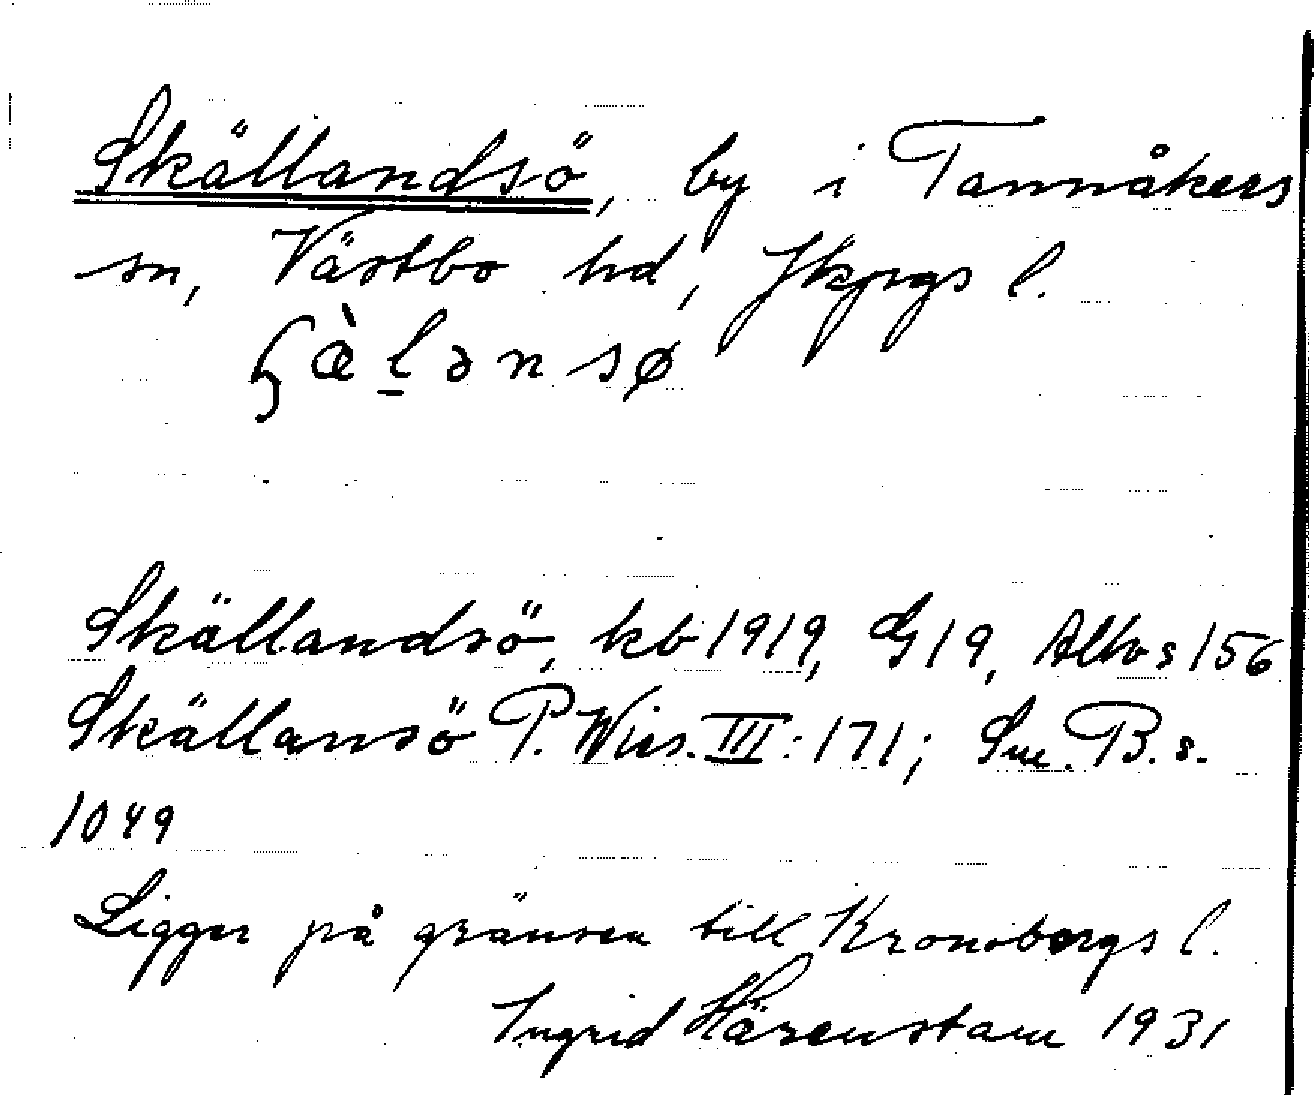 Skällandsö, by i Tannåkers
sn, Västbo hd, Jkpgs l.
ʂæ̀l̠ənsø
Skällandsö, kb 1919, G 19, Allbo s 156
Skällansö P. Wies. III: 171; Sm. B. s.
1049
Ligger på gränsen till Kronobergs l.
Ingrid Härenstam 1931